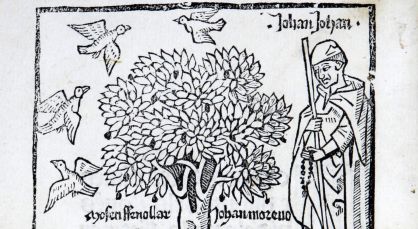 Johan Johan
Mosen ffenollar
Johan moreno